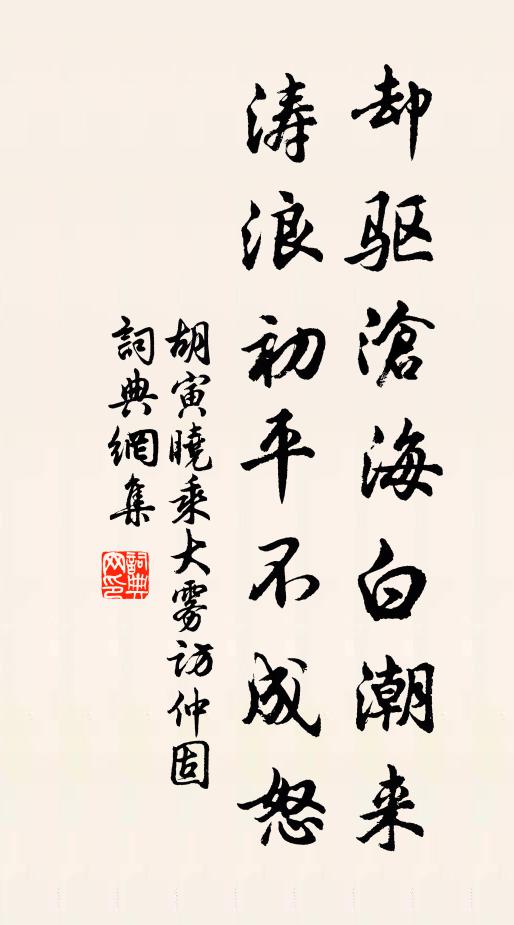 却驱滄海白潮来
涛浪初平不成怒
胡寅曉乘大雾访仲固
詞典網集
詞典网印